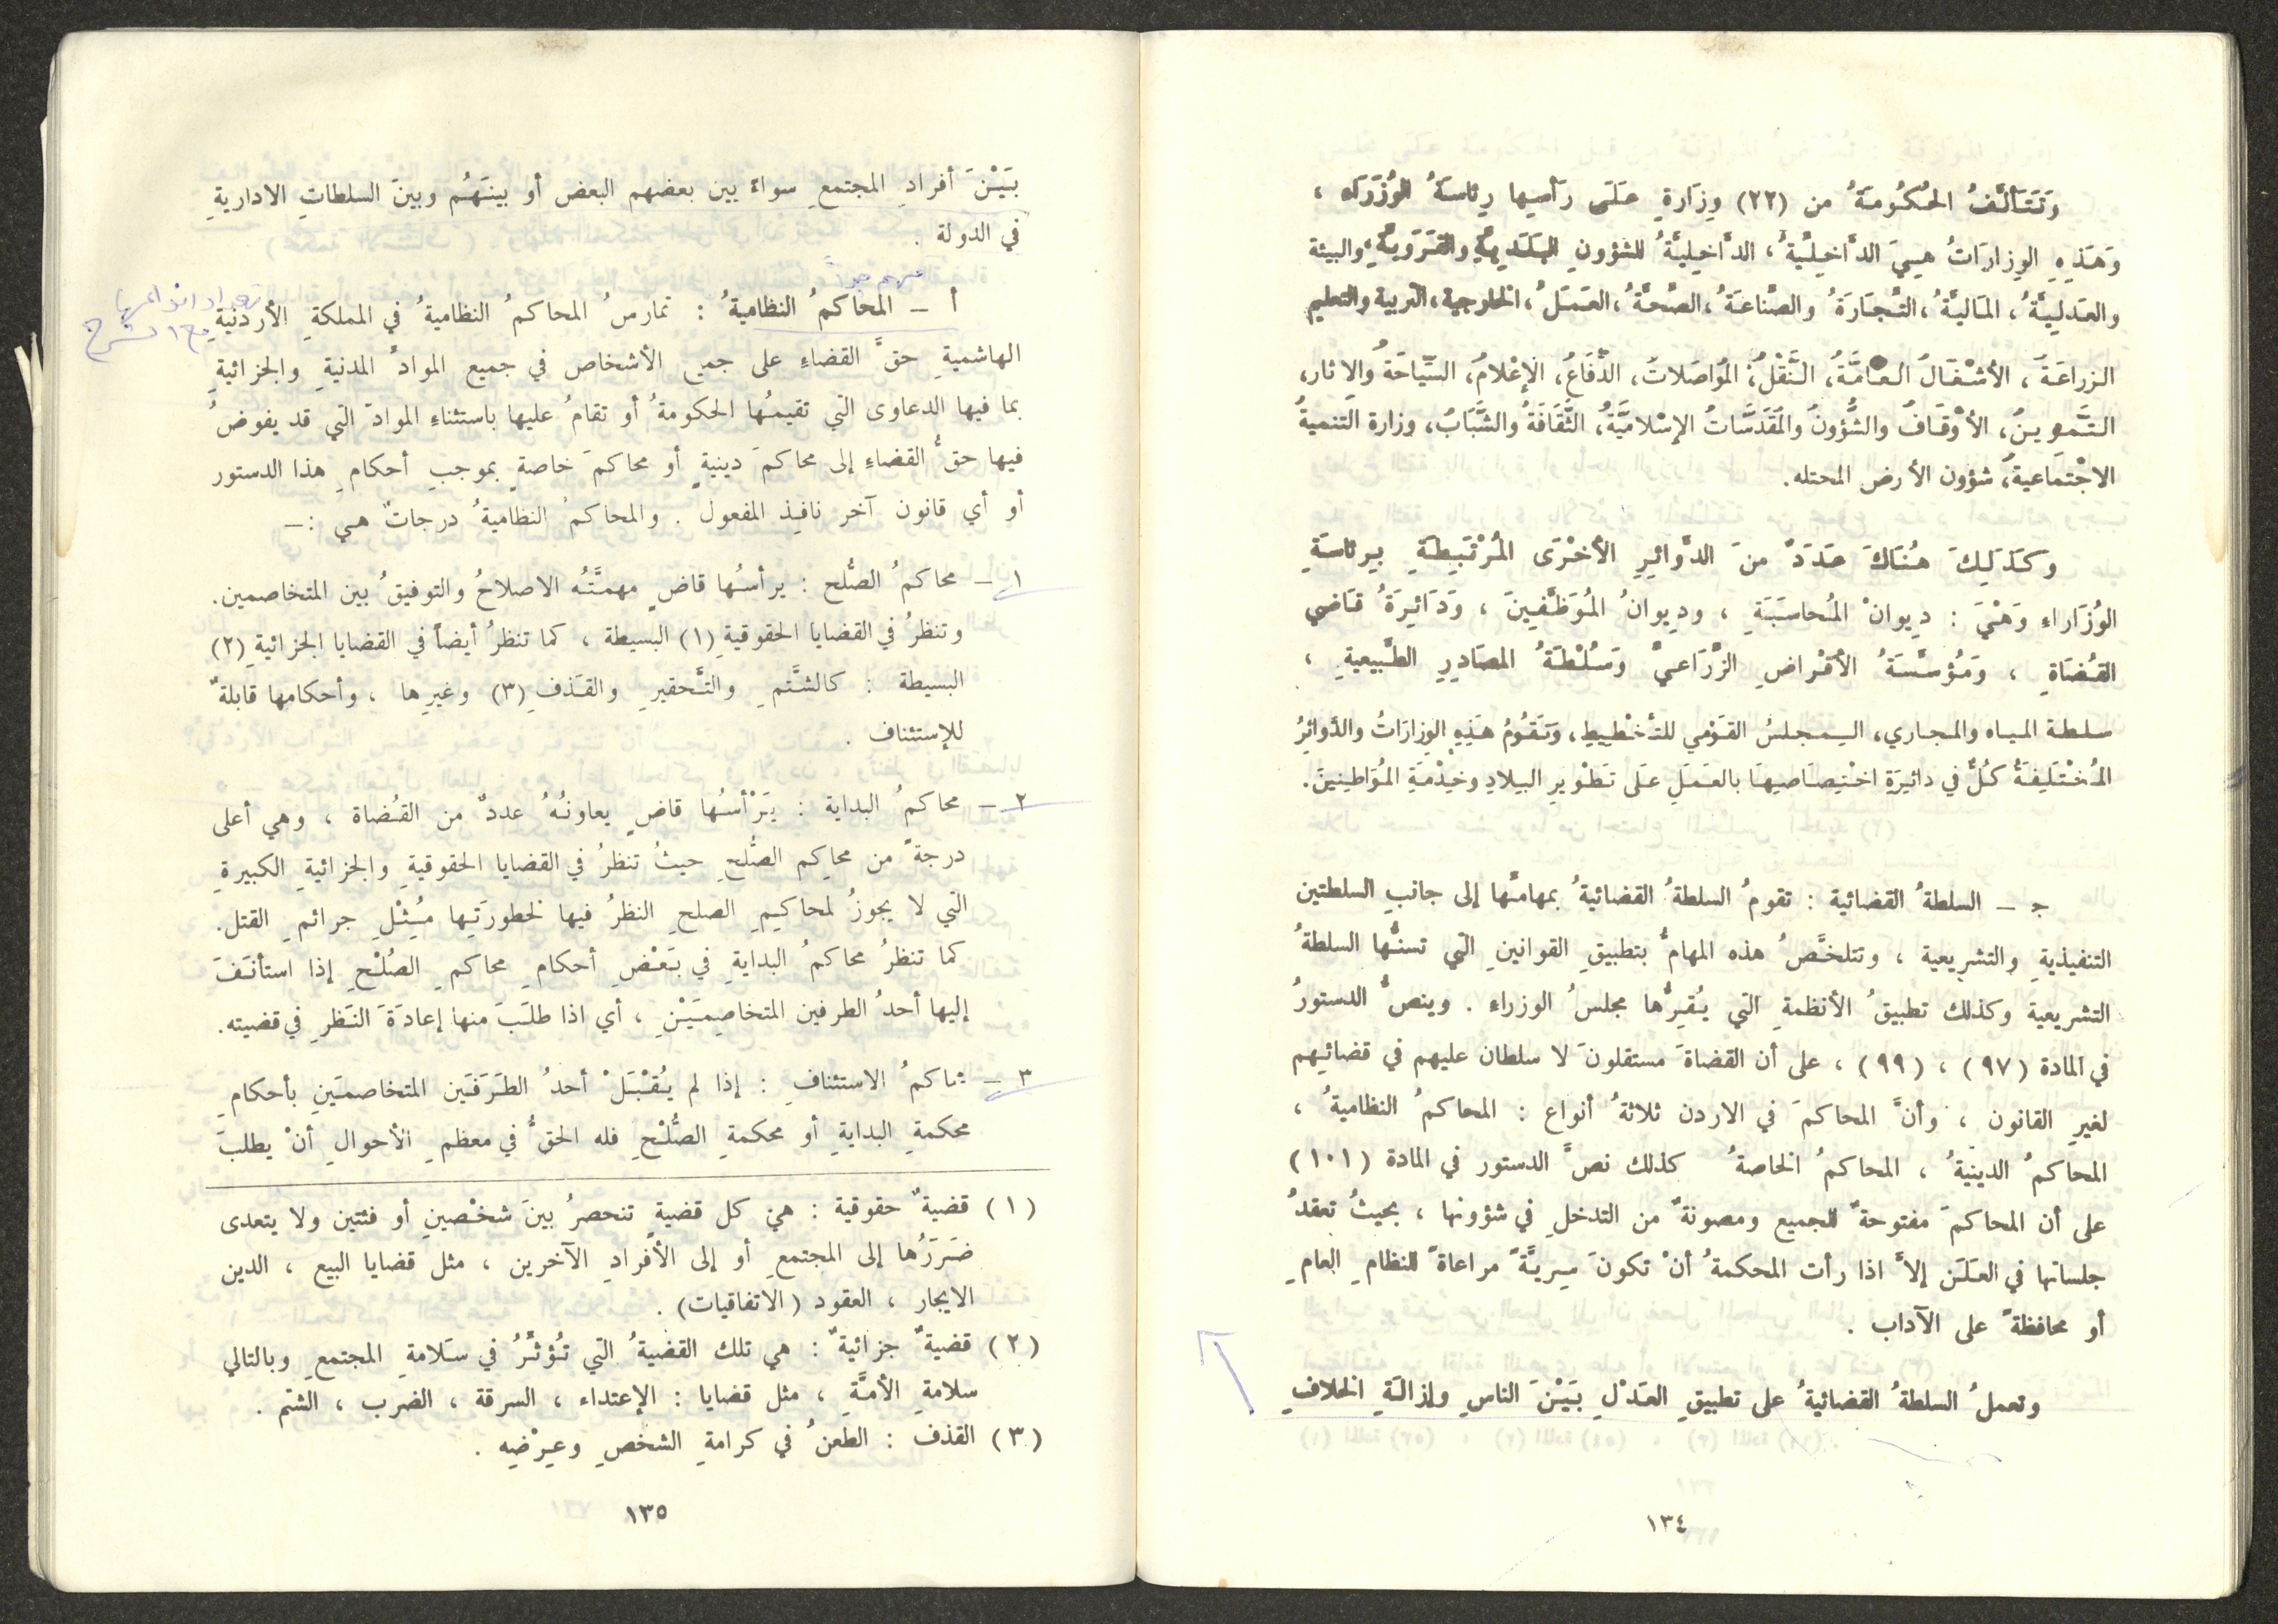 وَتَتَألَّفُ الحُكُومَةُ من (٢٢) وِزَارةٍ عَلَى رَأسِها رِئاسَةُ الوُزَرَاء ،
وَهَذِهِ الوِزارَاتُ هِيَ الدَّاخِلِيَّةُ، الدَّاخِلِيَّةُ للشؤونِ البَلَدِيةِ والقَرَوِيةِ، والبيئة
والعَدلِيَّةُ، المَاليَّةُ، التِّجَارَةُ والصِّناعَةُ، الصِّحَّةُ، العَمَلُ، الخارجية، التربية والتعليم
الزراعَةُ، الأشْغَالُ العَامَّةُ، النَّقْلُ، المُوَاصَلاتُ، الدِّفَاعُ، الإعْلامُ، السِّيَاحَةُ والاِثار،
التَّموينُ، الأوْقَافُ والشُّؤونُ والمُقَدَسَّاتُ الإسْلامِيَّةُ، الثَّقَافَةُ والشَّبَابُ، وزارة التنميةُ
الاجْتماعيةُ، شؤون الأرض المحتله.
وكَذَلِكَ هُنَاكَ عَدَدٌ منَ الدَّوائِرِ الأخْرَى المُرْتَبِطَةِ بِرئاسَةِ
الوُزَاراءِ وَهْيَ : دِيوانْ المُحاسَبَةِ ، ودِيوانُ المُوَظَّفِينَ ، وَدَائِرَةُ قَاضي
القُضَاةِ ، وَمُؤسَّسَةُ الأقْراضِ الزِّرَاعيِّ وَسُلْطَةُ المصَادِرِ الطَّبيعيةِ ،
سلطة المياه والمجاري، المجلسُ القَوْمي للتأخْطِيطِ، وَتَقُومُ هَذِهِ الوِزارَاتُ والدَّوائِرُ
المُخْتَلِفَةُ كُلٌّ في دائِرَةِ اخْتِصَاصِهَا بالعَمَلِ عَلَى تَطْوِيرِ البِلادِ وخِدْمَةِ المُوَاطِنِينَ.
جـ ــ السلطةُ القضائية : تقومُ السلطةُ القضائيةُ بمهامِّها إلى جانبِ السلطتين
التنفيذيةِ والتشريعية ، وتتلخَّصُ هذه المهامُّ بتطبيقِ القوانينِ التي تسنُّها السلطةُ
التشريعية وكذلك تطبيقُ الأنظمةِ التي يُقِرُّها مجلسُ الوزراءِ . وينصُّ الدستورُ
في المادة (٩٧) ، (٩٩) ، على أن القضاةَ مستقلونَ لا سلطان عليهم في قضائِهم
لغيرِ القانون ، وأنَّ المحاكمَ في الاردن ثلاثةُ أنواع : المحاكمُ النظاميةُ ،
المحاكمُ الدينيةُ ، المحاكمُ الخاصةُ كذلك نصَّ الدستور في المادة (١٠١)
على أن المحاكمَ مفتوحةٌ للجميع ومصونةٌ من التدخلِ في شؤونها ، بحيثُ تعقدُ
جلساتها في العَلَن إلاَّ اذا رأت المحكمةُ أنْ تكونَ سِريَّةً مراعاةً للنظامِ العامِ
أو محافظةً على الآداب .
وتعملُ السلطةُ القضائيةُ على تطبيقِ العَدْلِ بَيْنَ الناسِ وإزالَةِ الخلافِ
١٣٤
بَيْنَ أفرادِ المجتمعِ سواءً بين بعضهم البعض أو بينَهُم وبينَ السلطاتِ الاداريةِ
في الدولة .
مهم جداً
تعداد انواعها
أ ــ المحاكمُ النظاميةُ : تمارسُ المحاكمُ النظاميةُ في المملكةِ الأردنيةِ
الهاشميةِ حقَّ القضاءِ على جميع الأشخاص في جميع الموادِّ المدنيةِ والجزائيةِ
بما فيها الدعاوى التي تقيمُها الحكومةُ أو تقامُ عليها باستثناءِ الموادّ التي قد يفوضُ
فيها حقُّ القضاءِ إلى محاكمَ دينيةٍ أو محاكمَ خاصةٍ بموجبِ أحكامِ هذا الدستور
أو أي قانون آخر نافِذِ المفعول . والمحاكمُ النظاميةُ درجاتٌ هي :ــ
١ ــ محاكمُ الصُّلح : يرأسُها قاضٍ مهمتَّتُه الاصلاحُ والتوفيقُ بين المتخاصمين.
وتنظرُ في القضايا الحقوقيةِ (١) البسيطة ، كما تنظرُ أيضاً في القضايا الجزائيةِ (٢)
البسيطة : كالشَّتمِ والتَّحقيرِ والقَذفِ (٣) وغيرِها ، وأحكامها قابلةٌ
للإستئناف .
٢ ــ محاكمُ البداية : يَرْأسُها قاضٍ يعاونُهُ عددٌ من القُضاة ، وهي أعلى
درجةً من محاكِم الصُّلحِ حيثُ تنظرُ في القضايا الحقوقيةِ والجزائيةِ الكبيرةِ
التي لا يجوزُ لمحاكِمِ الصلحِ النظرُ فيها لخطورَتِها مِثْلِ جرائمِ القتل.
كما تنظرُ محاكمُ البدايةِ في بَعْضِ أحكامِ محاكمِ الصُلْحِ إذا استأنَفَ
إليها أحدُ الطرفين المتخاصِمَيْنِ ، أي اذا طلَبَ منها إعادَةَ النَظرِ في قضيته.
٣ ــ محاكمُ الاستئنافِ : إذا لم يُقْبَلْ أحدُ الطَرَفَين المتخاصمَينِ بأحكامِ
محكمةِ البدايةِ أو محكمةِ الصُّلْحِ فله الحقُّ في معظمِ الأحوالِ أنْ يطلبَ
(١) قضيةٌ حقوقية : هي كل قضيةٍ تنحصرُ بينَ شخْصينِ أو فئتين ولا يتعدى
ضَرَرُها إلى المجتمعِ أو إلى الأفرادِ الآخرين ، مثل قضايا البيع ، الدين
الايجار ، العقود (الاتفاقيات) .
(٢) قضيةٌ جزائيةٌ : هي تلك القضيةُ التي تُؤثِّرُ في سَلامةِ المجتمعِ وبالتالي
سلامةِ الأمَّةِ ، مثل قضايا : الإعتداء ، السرقة ، الضرب ، الشتم .
(٣) القذف : الطعنُ في كرامةِ الشخصِ وعِرْضِه .
١٣٥